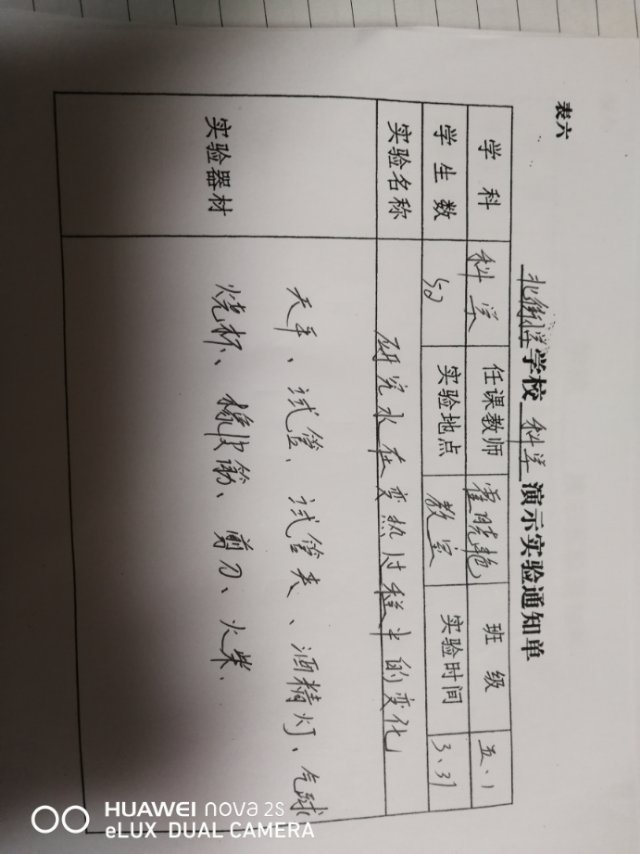 表六
北街小学学校 科学 演示实验通知单
学科 科学 任课教师 霍晓艳 班级 五、1
学生数 52 实验地点 教室 实验时间 3、31
实验名称 研究水在变热过程中的变化
实验器材 天平、试管、试管夹、酒精灯、气球
烧杯、橡皮筋、剪刀、火柴、
HUAWEI nova 2s
eLUX DUAL CAMERA